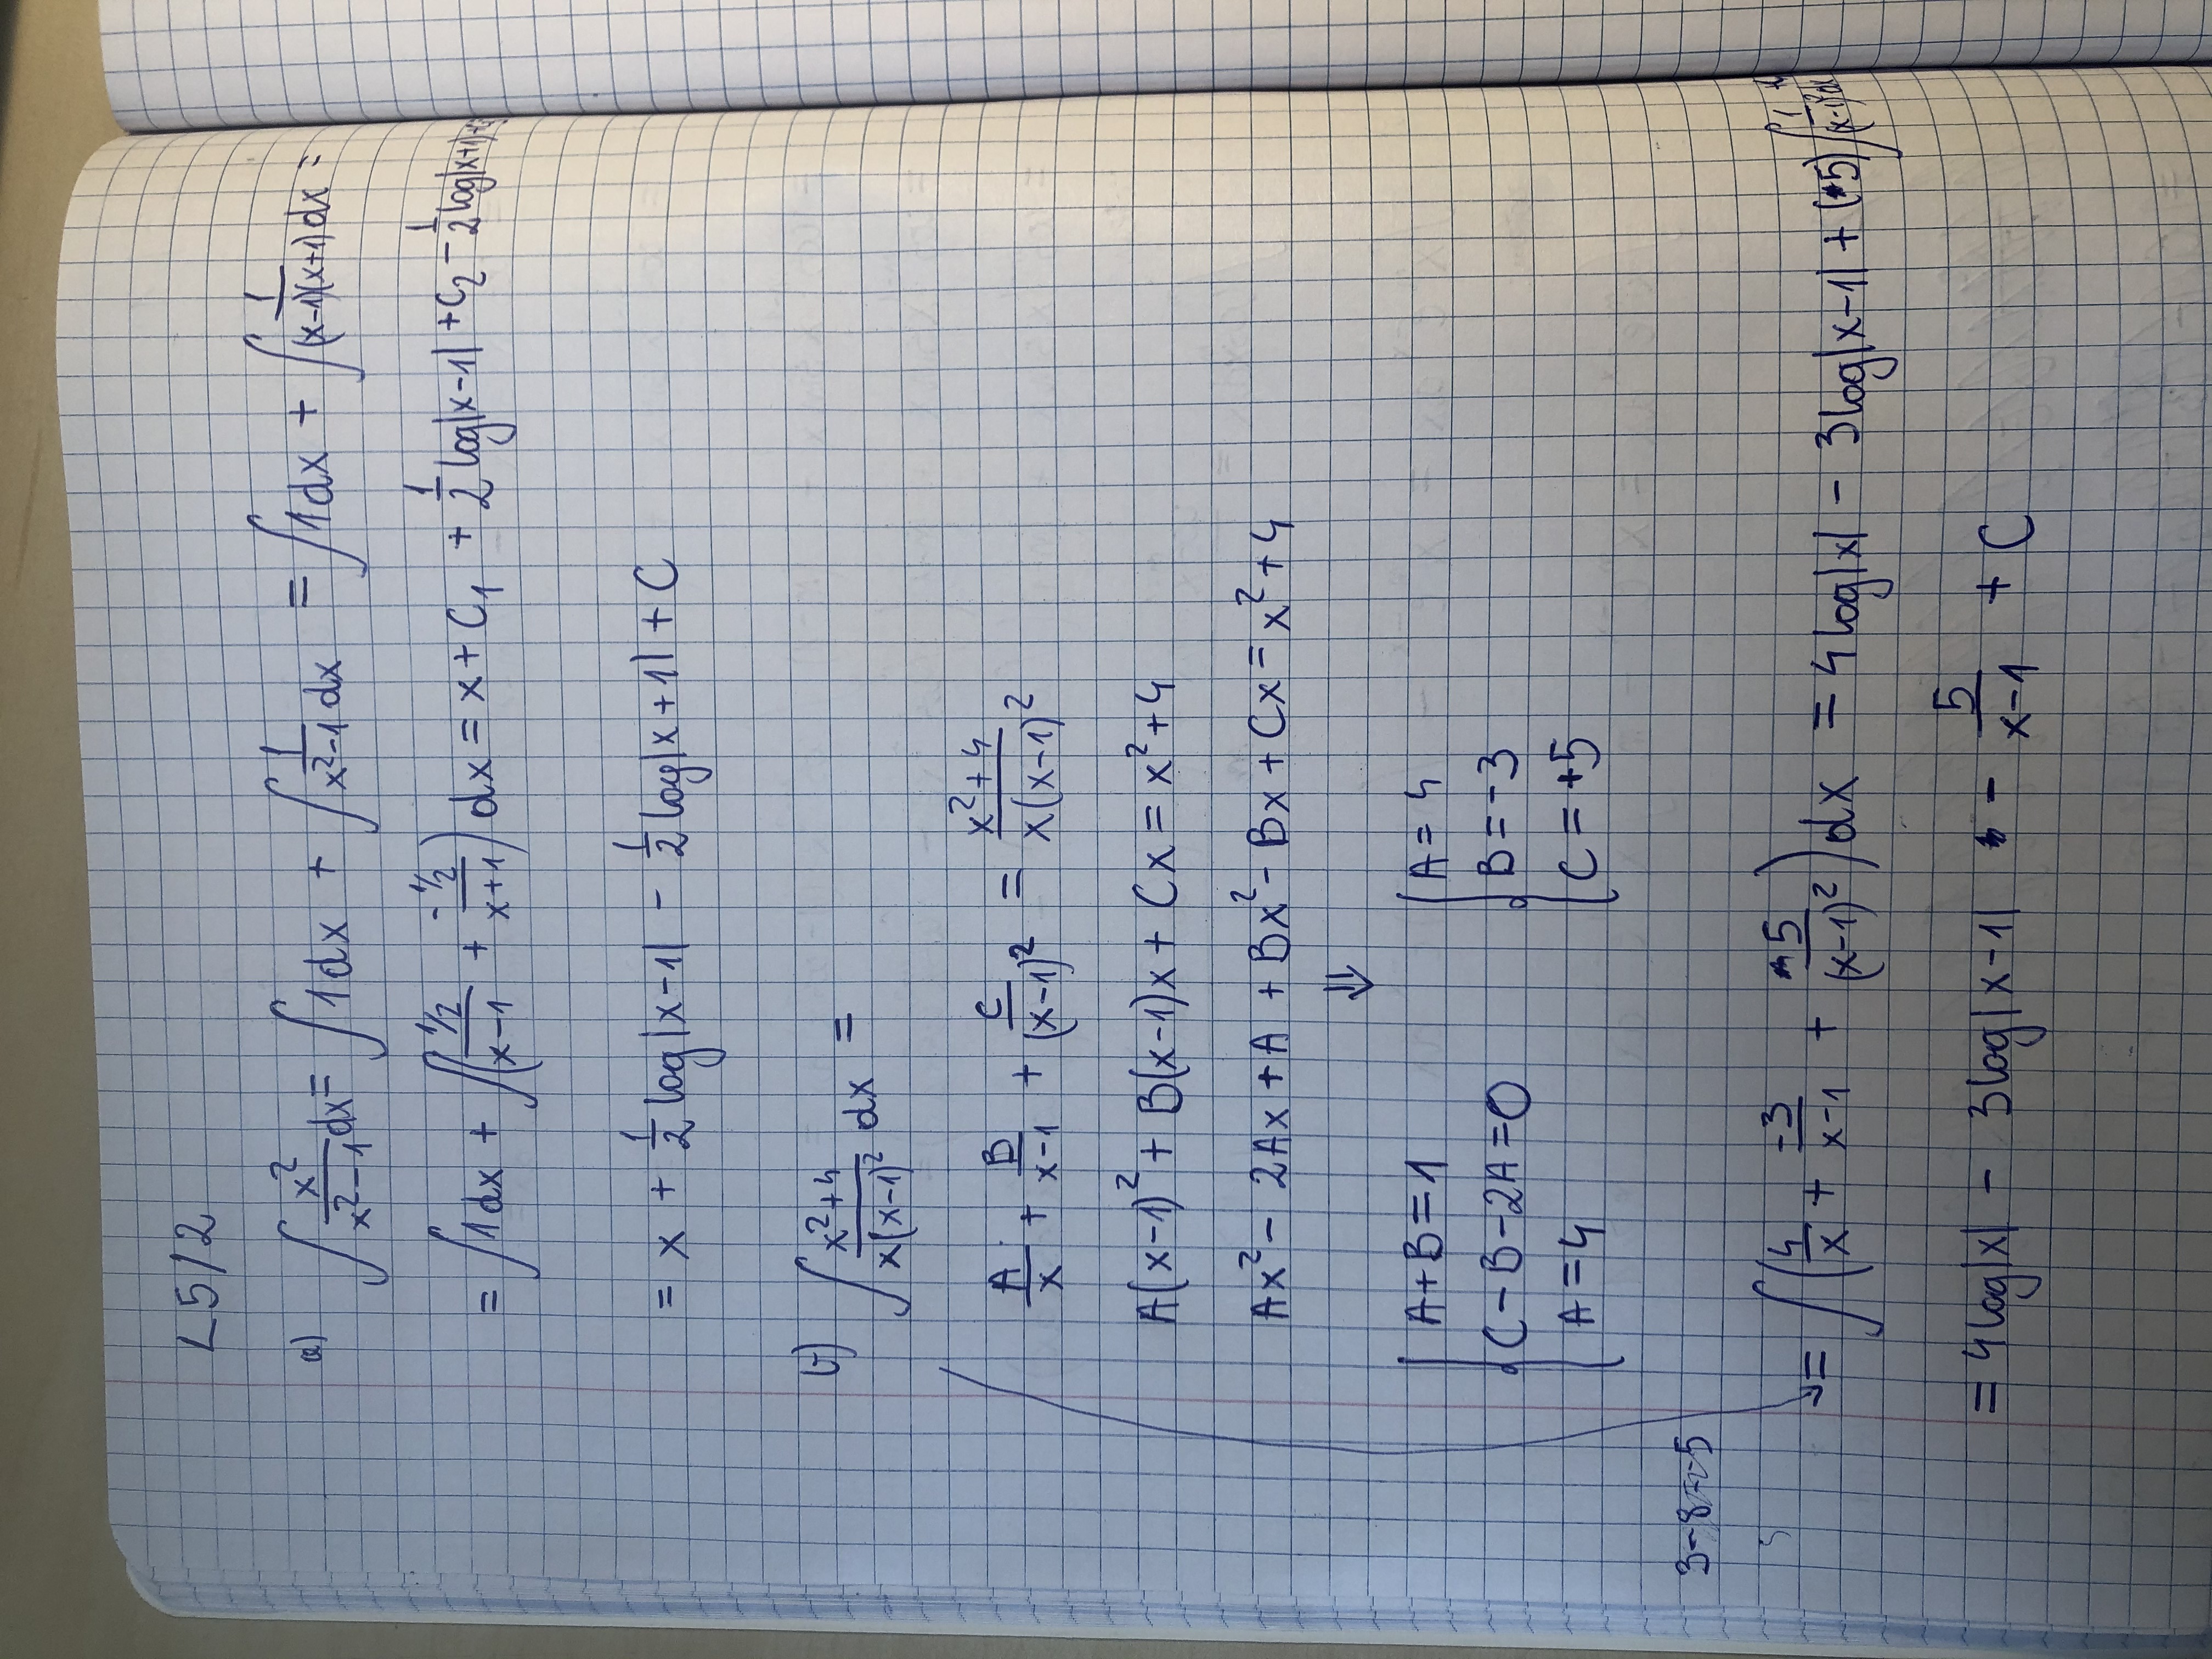 L5/2
a) ∫ x²/(x²-1) dx = ∫ 1 dx + ∫ 1/(x²-1) dx = ∫ 1 dx + ∫ 1/((x-1)(x+1)) dx =
= ∫ 1 dx + ∫ ( (1/2)/(x-1) + (-1/2)/(x+1) ) dx = x + C₁ + 1/2 log|x-1| + C₂ - 1/2 log|x+1|
= x + 1/2 log|x-1| - 1/2 log|x+1| + C
b) ∫ (x²+4)/(x(x-1)²) dx =
A/x + B/(x-1) + C/(x-1)² = (x²+4)/(x(x-1)²)
A(x-1)² + B(x-1)x + Cx = x²+4
Ax² - 2Ax + A + Bx² - Bx + Cx = x²+4
⇓
{ A+B=1 { A = 4
{ C-B-2A=0 { B = -3
{ A=4 { C = +5
3-8=-5
= ∫ ( 4/x + -3/(x-1) + 5/(x-1)² ) dx = 4 log|x| - 3 log|x-1| + (5) ∫ 1/(x-1)² dx
= 4 log|x| - 3 log|x-1| - 5/(x-1) + C